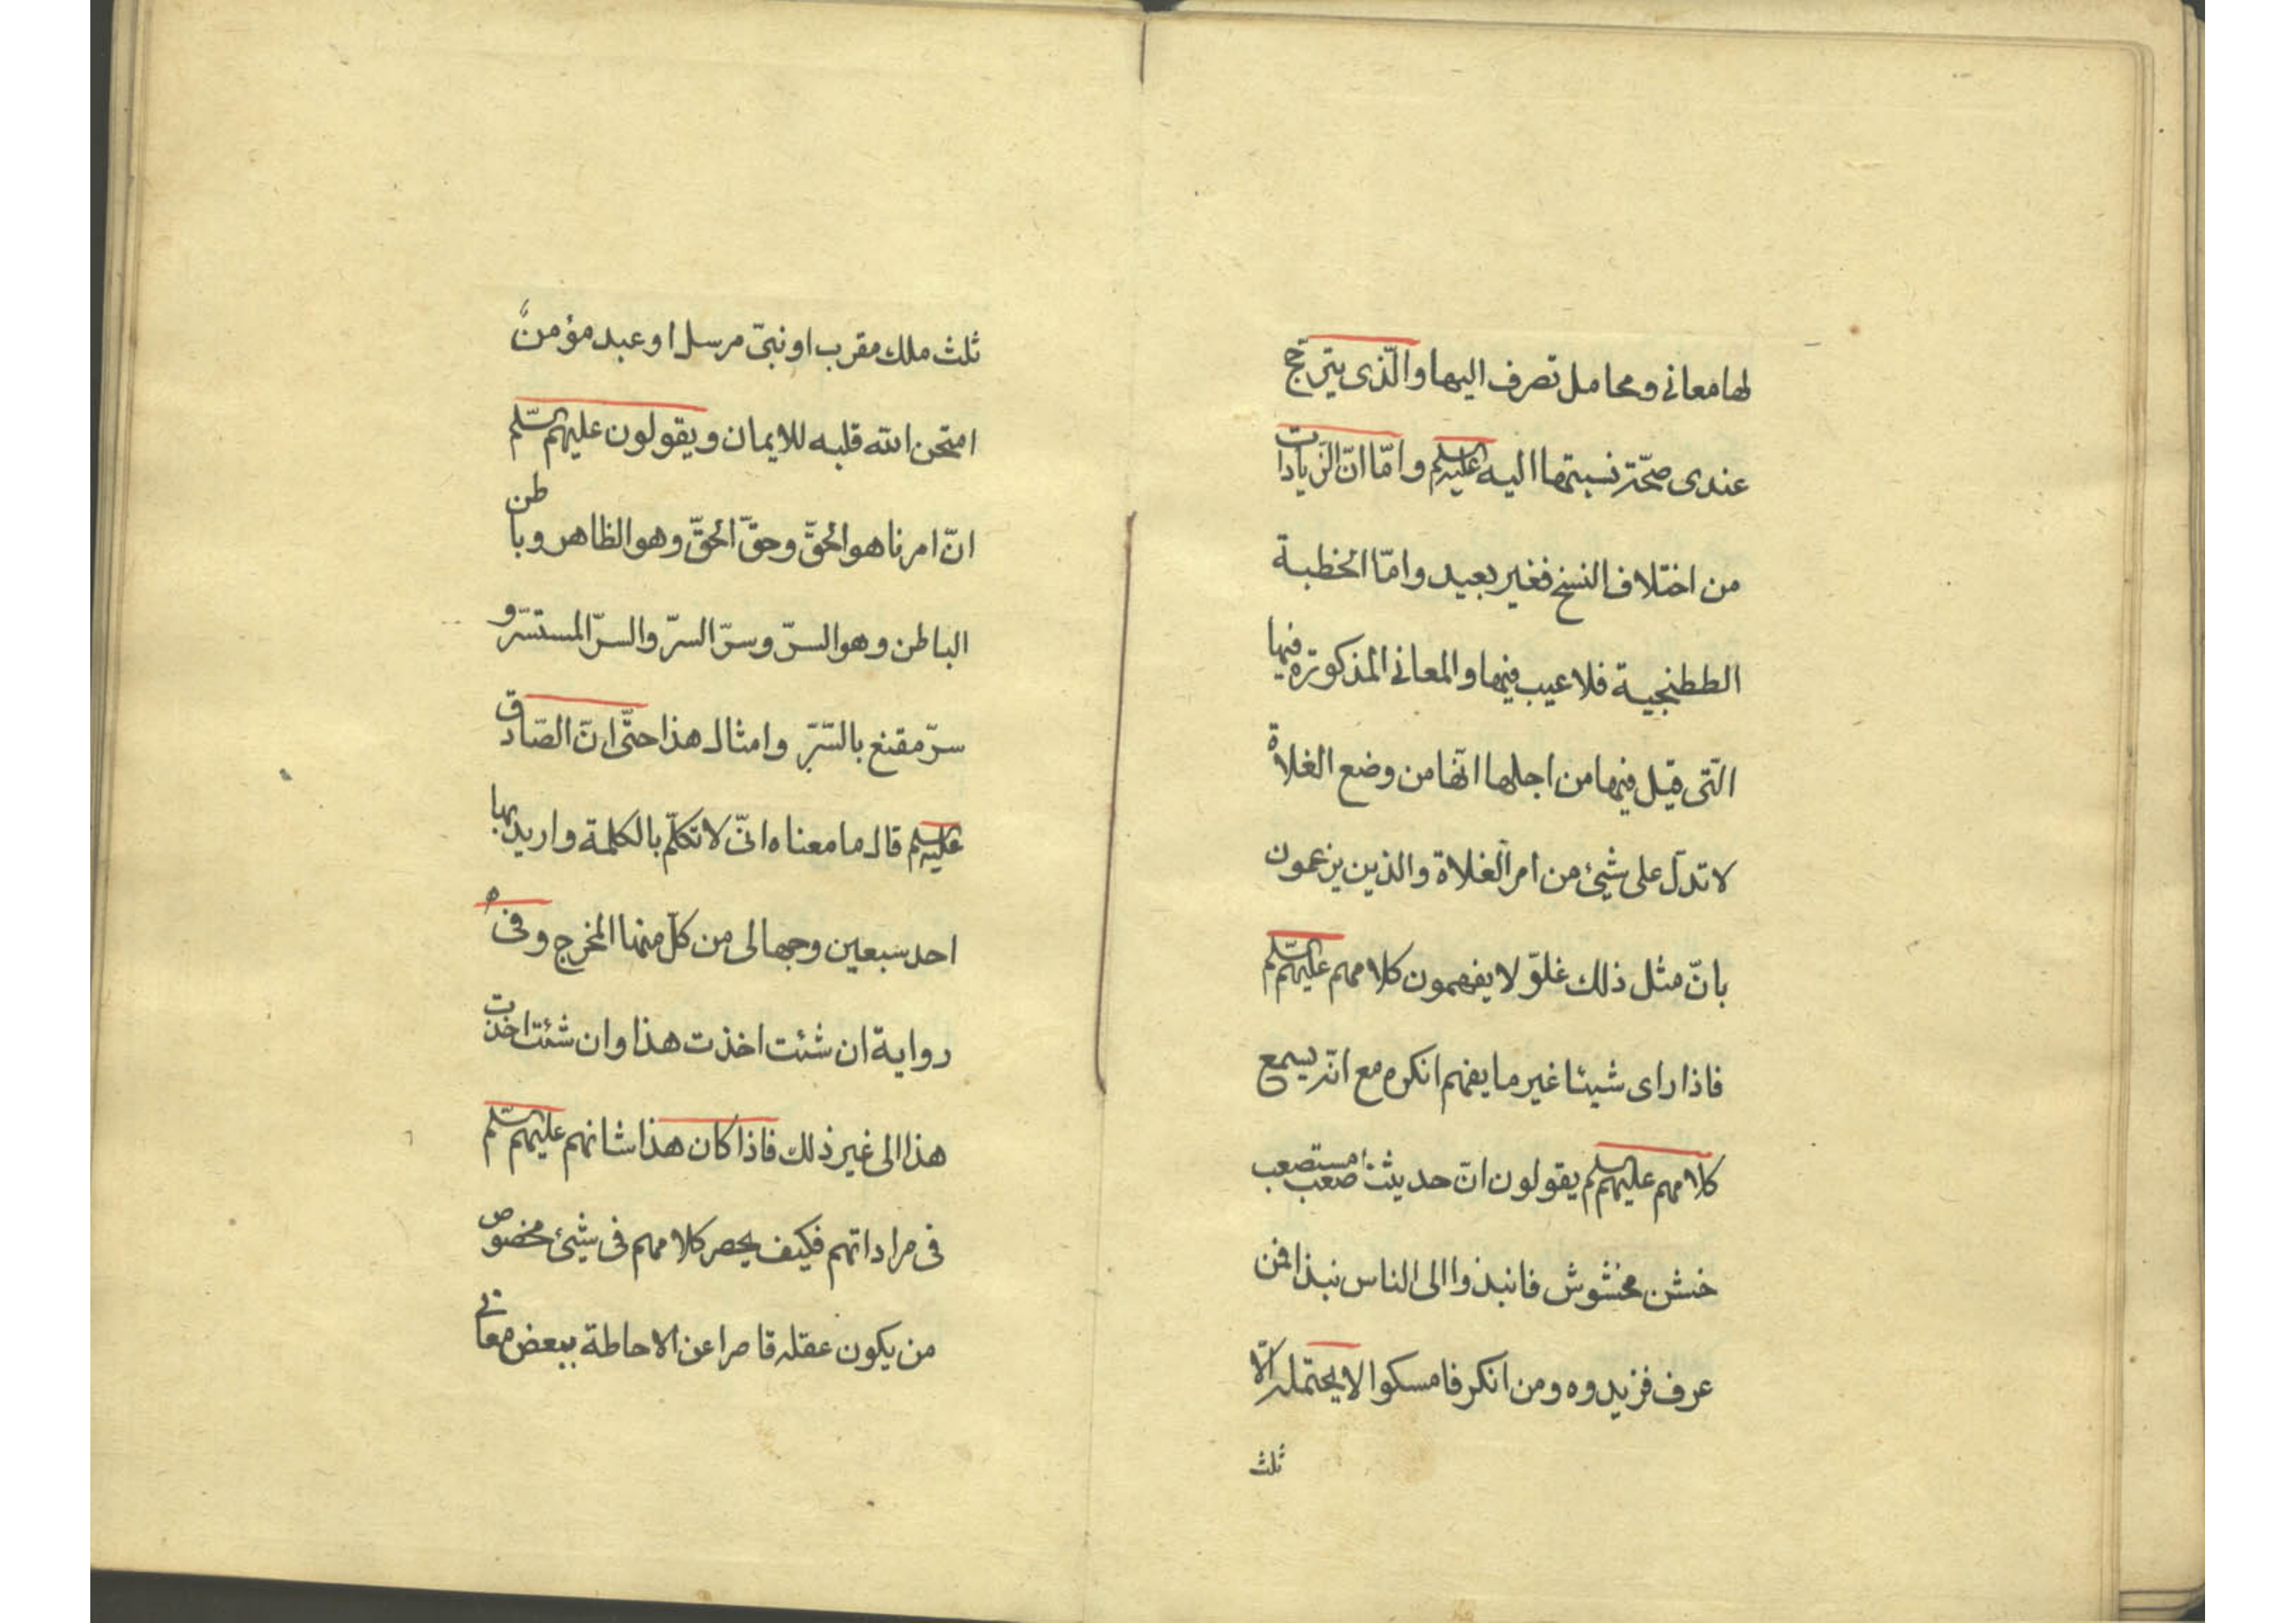 لها معانى ومحامل تصرف اليها والّذى يترجّح
عندى صحّة نسبتها اليه عليه السلم وامّا انّ الزيادات
من اختلاف النسخ فغير بعيد وامّا الخطبة
الططنجية فلا عيب فيها والمعانى المذكورة فيها
الّتى قيل فيها من اجلها انّها من وضع الغلاة
لا تدلّ على شيئ من امر الغلاة والذين يزعمون
بانّ مثل ذلك غلوّ لا يفهمون كلامهم عليهم السّلم
فاذا راى شيئا غير ما يفهم انكره مع انّه يسمع
كلامهم عليهم السلم يقولون انّ حديثنا صعب مستصعب
خشن مخشوش فانبذوا الى الناس نبذا فمن
عرف فزيدوه ومن انكر فامسكوا لا يحتمله الّا
ثلث
ثلث ملك مقرب او نبىّ مرسل او عبد مؤمن
امتحن الله قلبه للايمان ويقولون عليهم السّلم
انّ امرنا هو الحقّ وحقّ الحقّ وهو الظاهر وباطن
الباطن وهو السرّ وسرّ السرّ والسرّ المستسرّ و
سرّ مقنع بالسّرّ وامثال هذا حتّى انّ الصّادق
عليه السلم قال ما معناه انّى لاتكلّم بالكلمة واريد بها
احد سبعين وجها لى من كلّ منها المخرج وفى
رواية ان شئت اخذت هذا وان شئت اخذت
هذا الى غير ذلك فاذا كان هذا شانهم عليهم السّلم
فى مراداتهم فكيف يحصر كلامهم فى شيئ مخصوص
من يكون عقله قاصرا عن الاحاطة ببعض معانى